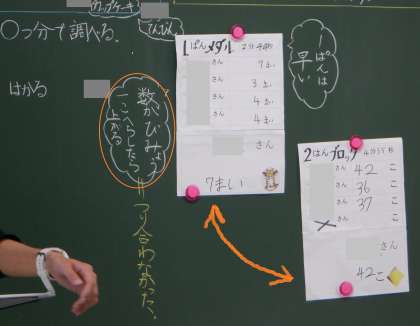 カップケーキ
〇つ分で調べる。
てんびん
はかる
数がびみょう
こへらしたら
上がる
つり合わなかった、
1ぱんメダル
さん 7まい
さん 3まい
さん 4まい
さん 4まい
さん
7まい
1ぱんは
早い
2はんブロック
さん 42こ
さん 36こ
さん 37こ
さん
さん
42こ